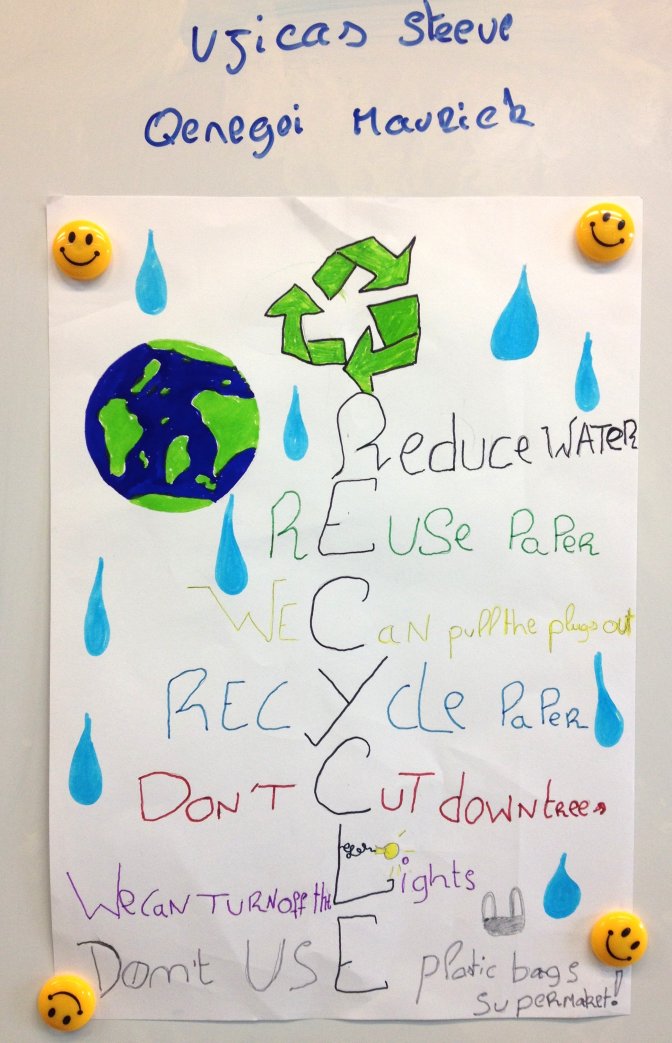 Ujicas Steeve
Qenegoi Maurick
Reduce WATeR
REUSe PaPeR
WE CaN pull the plugs out
RECYcLe PaPeR
DON'T CUT down trees
We CaN TURN off the Lights
Don't USE plastic bags
SUPERMaket!